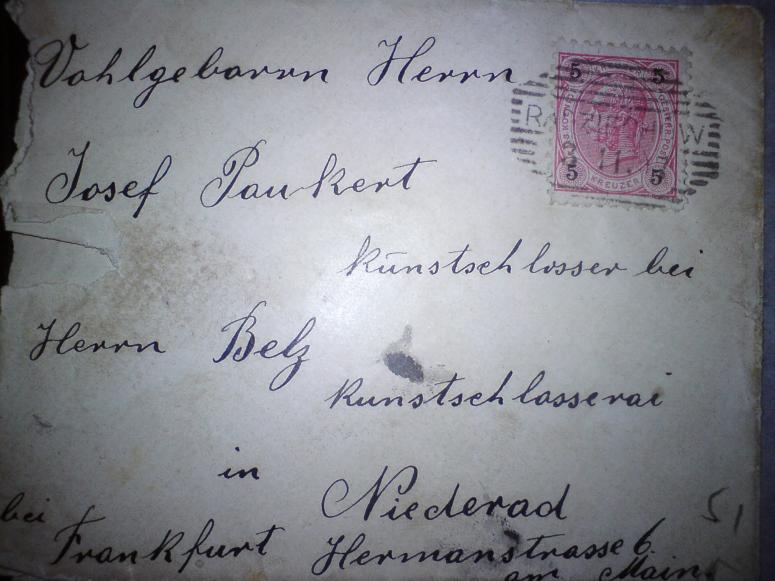 Vohlgebarrn Herrn
Josef Paukert
Kunstschlosser bei
Herrn Belz
Kunstschlasserai
in
Niederad
bei
Frankfurt Hermanstrasse 6.
am Main.
5 5
KREUZER
5 5
11.
51